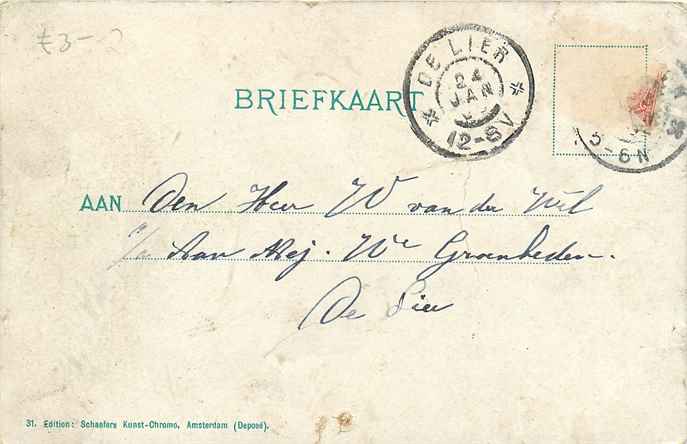 £3-
BRIEFKAART
DE LIER
24
JAN
12-8V
5-6N
AAN Den Heer W van der Wel
Aan Mej. We Groenheden.
De Lier
31. Edition: Schaefers Kunst-Chromo, Amsterdam (Deposé).